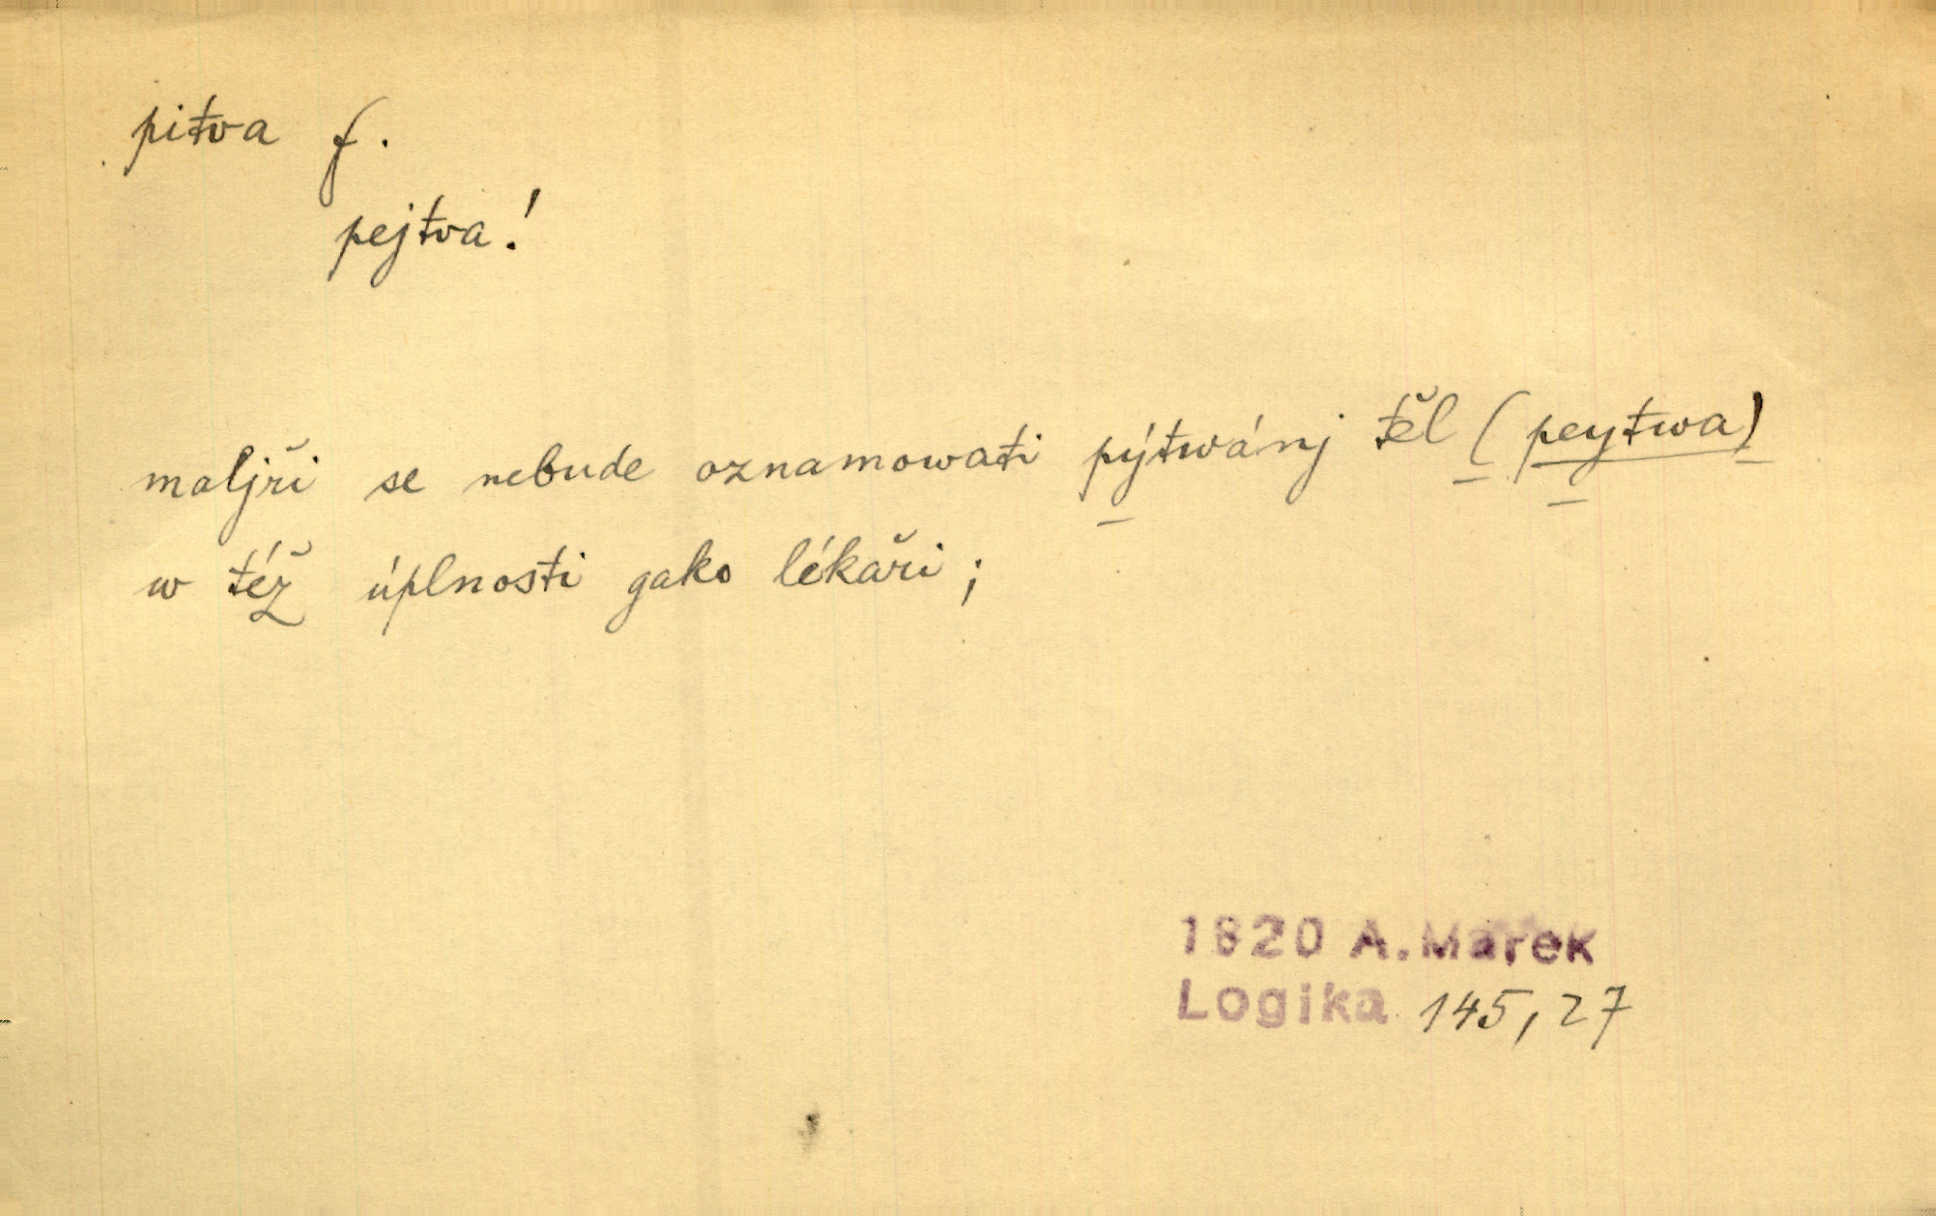 pitva f.
pejtva!
maljři se nebude oznamowati pýtwánj těl (peytwa)
w též úplnosti gako lékaři;
1820 A. Marek
Logika 145, 27